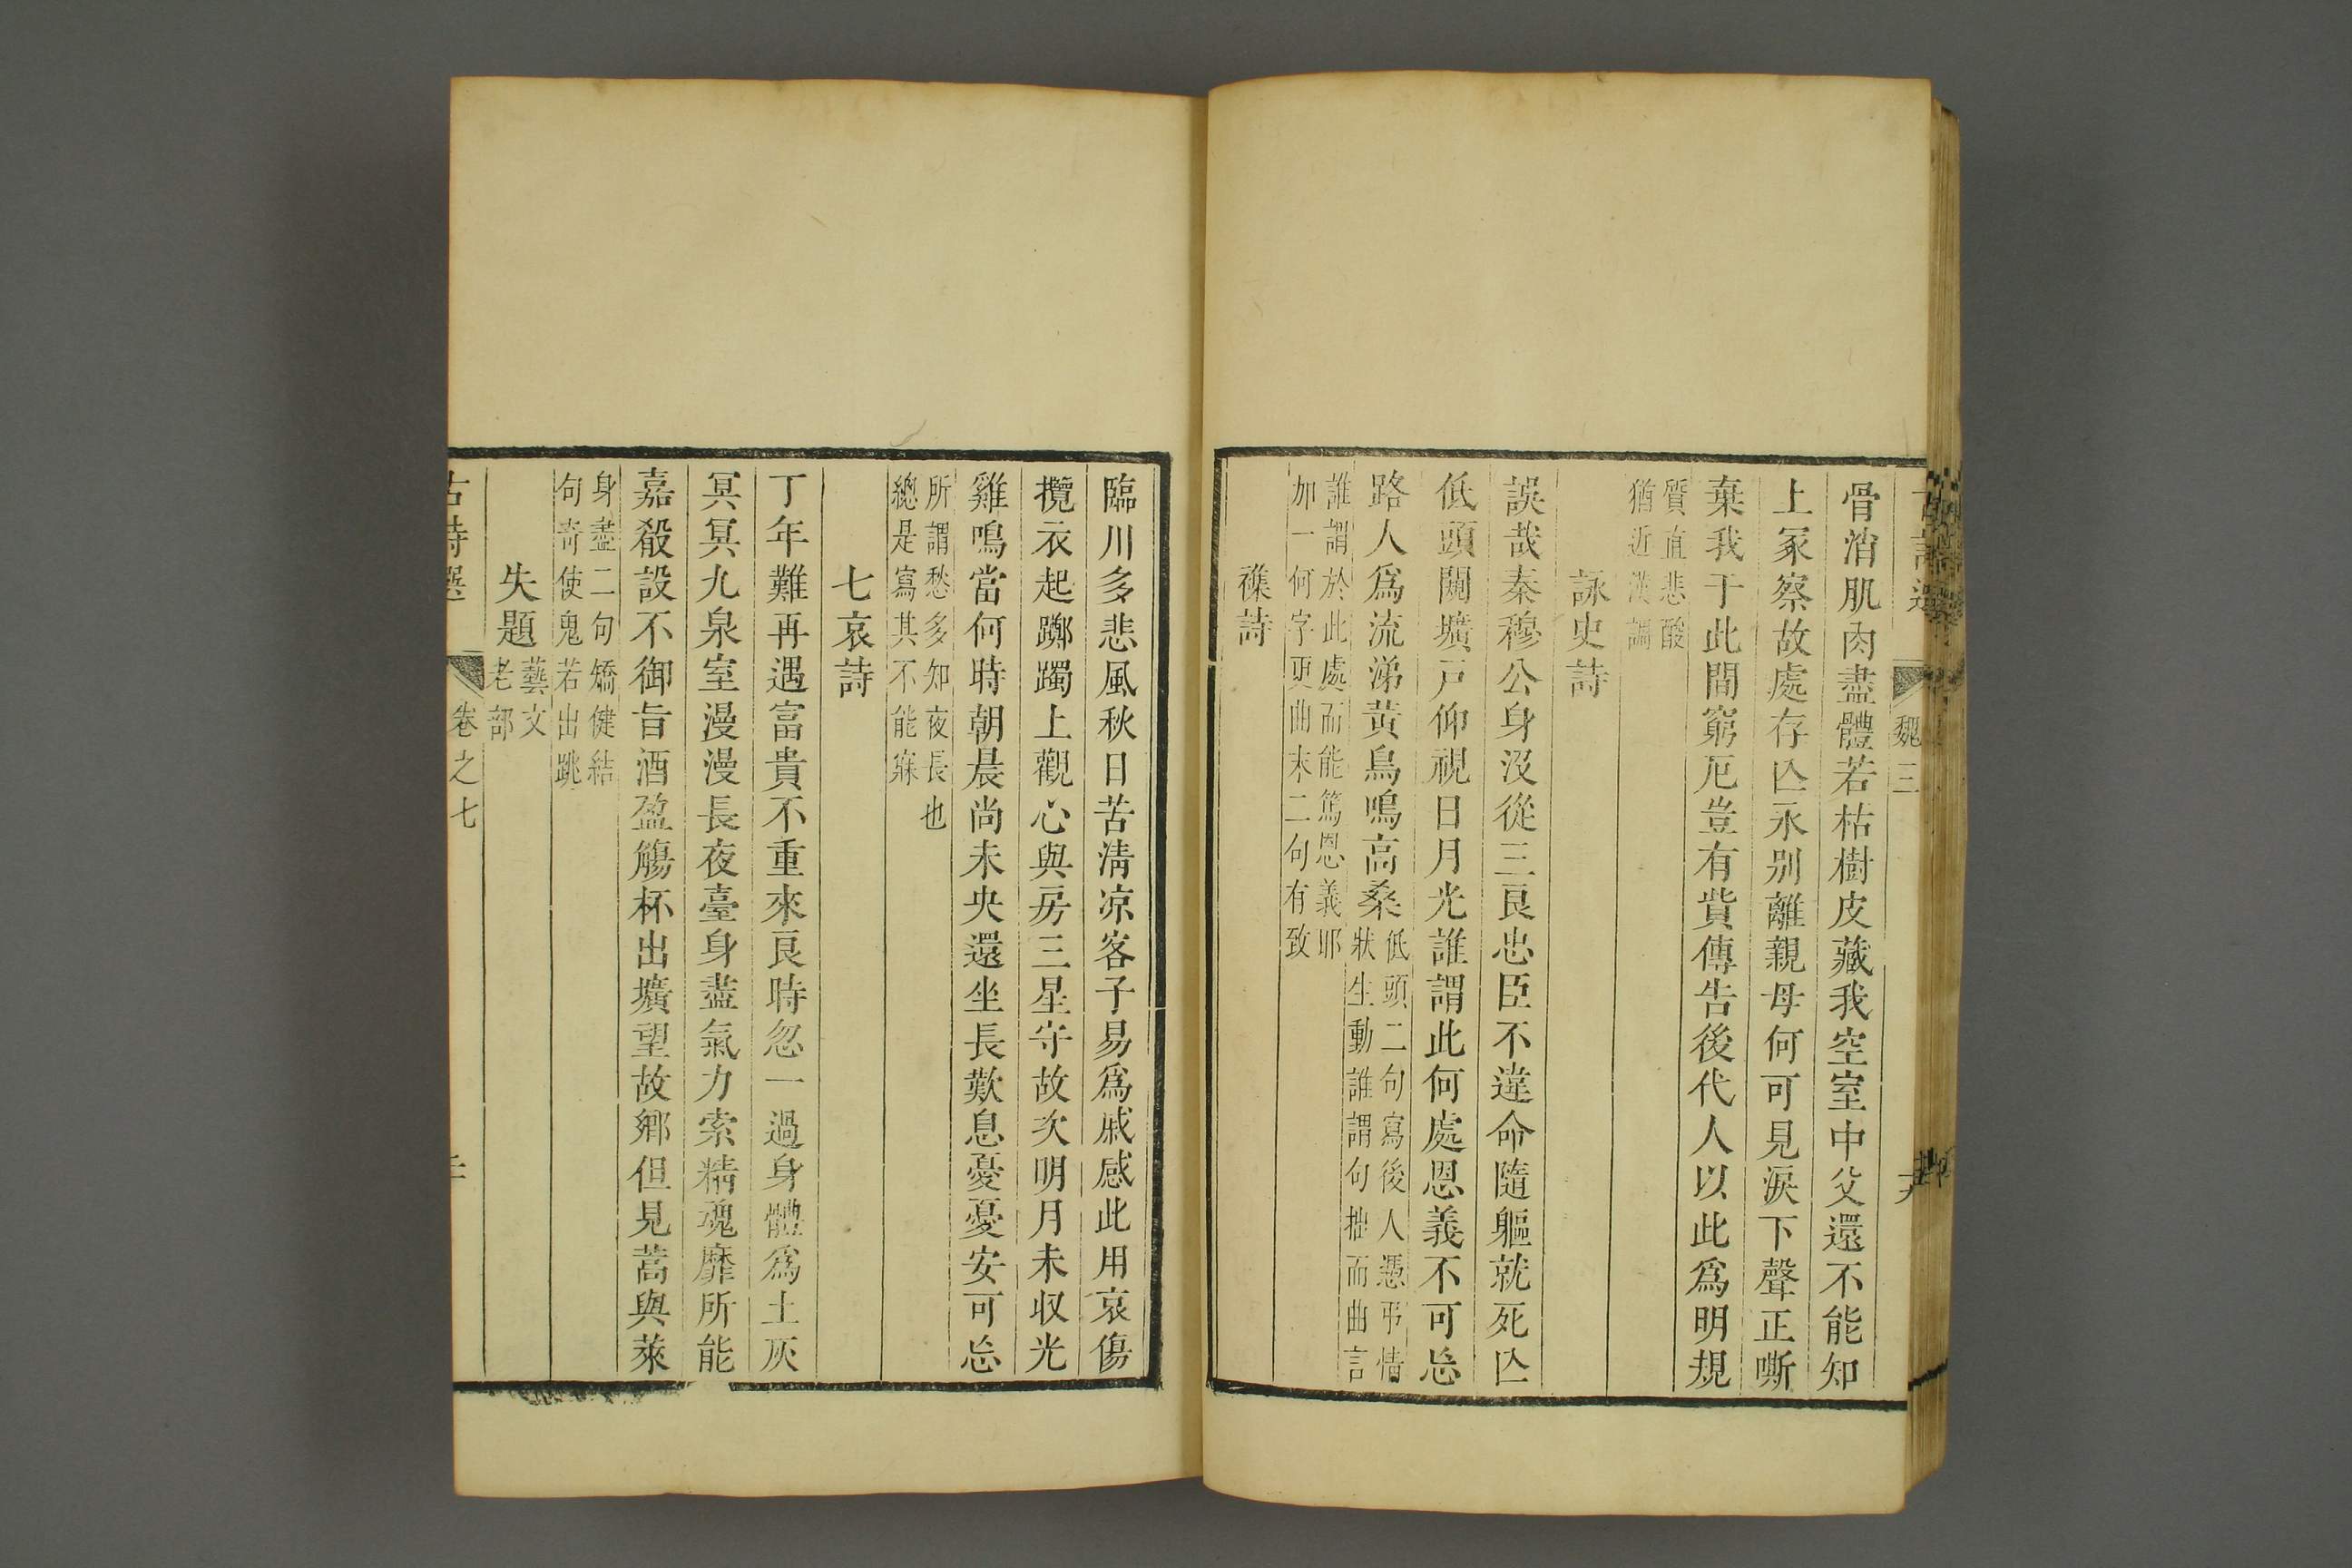 古詩選 魏三
骨消肌肉盡體若枯樹皮藏我空室中父還不能知
上冢察故處存亾永別離親母何可見淚下聲正嘶
棄我于此間窮厄豈有貲傳告後代人以此爲明規
質直悲酸
猶近漢調
詠史詩
誤哉秦穆公身沒從三良忠臣不違命隨軀就死亾
低頭闚壙戸仰視日月光誰謂此何處恩義不可忘
路人爲流涕黃鳥鳴高桑
低頭二句寫後人憑弔情
狀生動誰謂句拙而曲言
誰謂於此處而能篤恩義耶
加一何字更曲末二句有致
襍詩
臨川多悲風秋日苦淸凉客子易爲戚感此用哀傷
攬衣起躑躅上觀心與房三星守故次明月未収光
雞鳴當何時朝晨尚未央還坐長歎息憂憂安可忘
所謂愁多知夜長也
總是寫其不能寐
七哀詩
丁年難再遇富貴不重來良時忽一過身體爲土灰
冥冥九泉室漫漫長夜臺身盡氣力索精魂靡所能
嘉殽設不御旨酒盈觴杯出壙望故鄉但見蒿與萊
身盡二句矯健結
句奇使鬼若出跳
失題
藝文
老部
古詩選 卷之七